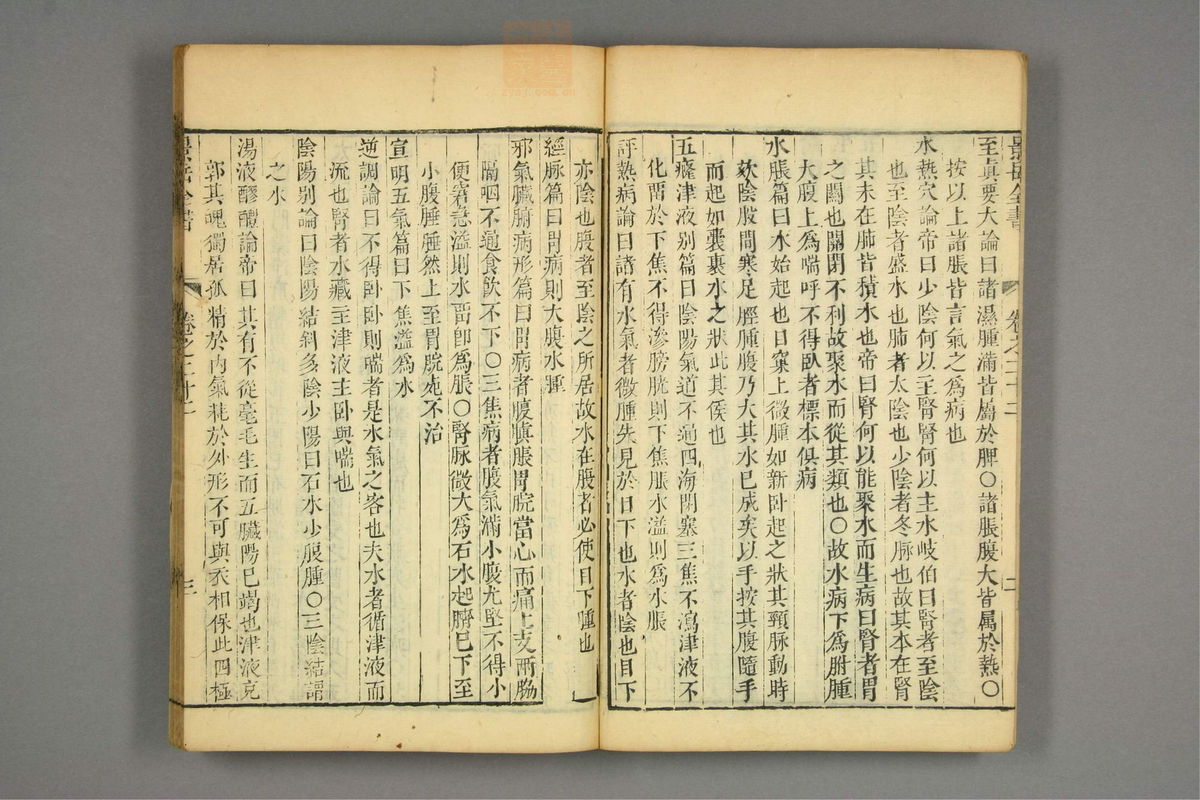 景岳全書 卷之二十二 二
至眞要大論曰諸濕腫滿皆屬於脾〇諸脹腹大皆屬於熱〇
按以上諸脹皆言氣之爲病也
水熱穴論帝曰少陰何以主腎腎何以主水岐伯曰腎者至陰
也至陰者盛水也肺者太陰也少陰者冬脉也故其本在腎
其末在肺皆積水也帝曰腎何以能聚水而生病曰腎者胃
之關也關閉不利故聚水而從其類也〇故水病下爲胕腫
大腹上爲喘呼不得臥者標本俱病
水脹篇曰水始起也目窠上微腫如新卧起之狀其頸脉動時
欬陰股間寒足脛腫腹乃大其水已成矣以手按其腹隨手
而起如裹裹水之狀此其侯也
五癃津液别篇曰陰陽氣道不通四海閉塞三焦不瀉津液不
化畱於下焦不得滲膀胱則下焦脹水溢則爲水脹
評熱病論曰諸有水氣者微腫先見於目下也水者陰也目下
亦陰也腹者至陰之所居故水在腹者必使目下腫也
經脉篇曰胃病則大腹水腫
邪氣臟腑病形篇曰胃病者腹䐜脹胃脘當心而痛上支兩脇
隔咽不通食飲不下〇三焦病者腹氣滿小腹尤堅不得小
便窘急溢則水畱卽爲脹〇腎脉微大爲石水起臍已下至
小腹腄腄然上至胃脘死不治
宣明五氣篇曰下焦溢爲水
逆調論曰不得卧卧則喘者是水氣之客也夫水者循津液而
流也腎者水藏主津液主卧與喘也
陰陽别論曰陰陽結斜多陰少陽曰石水少腹腫〇三陰結謂
之水
湯液醪醴論帝曰其有不從毫毛生而五臟陽已竭也津液充
郭其魄獨居孤精於內氣耗於外形不可與衣相保此四極
景岳全書 卷之二十二 三